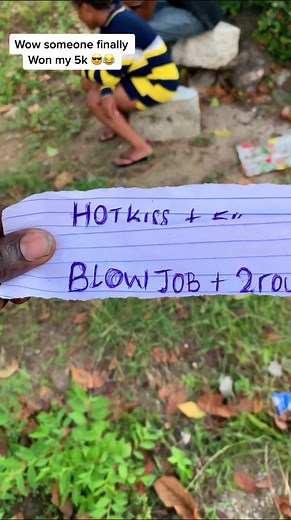 Wow someone finally
Won my 5k 😎😂
HOTKISS +
BLOWJOB + 2rou